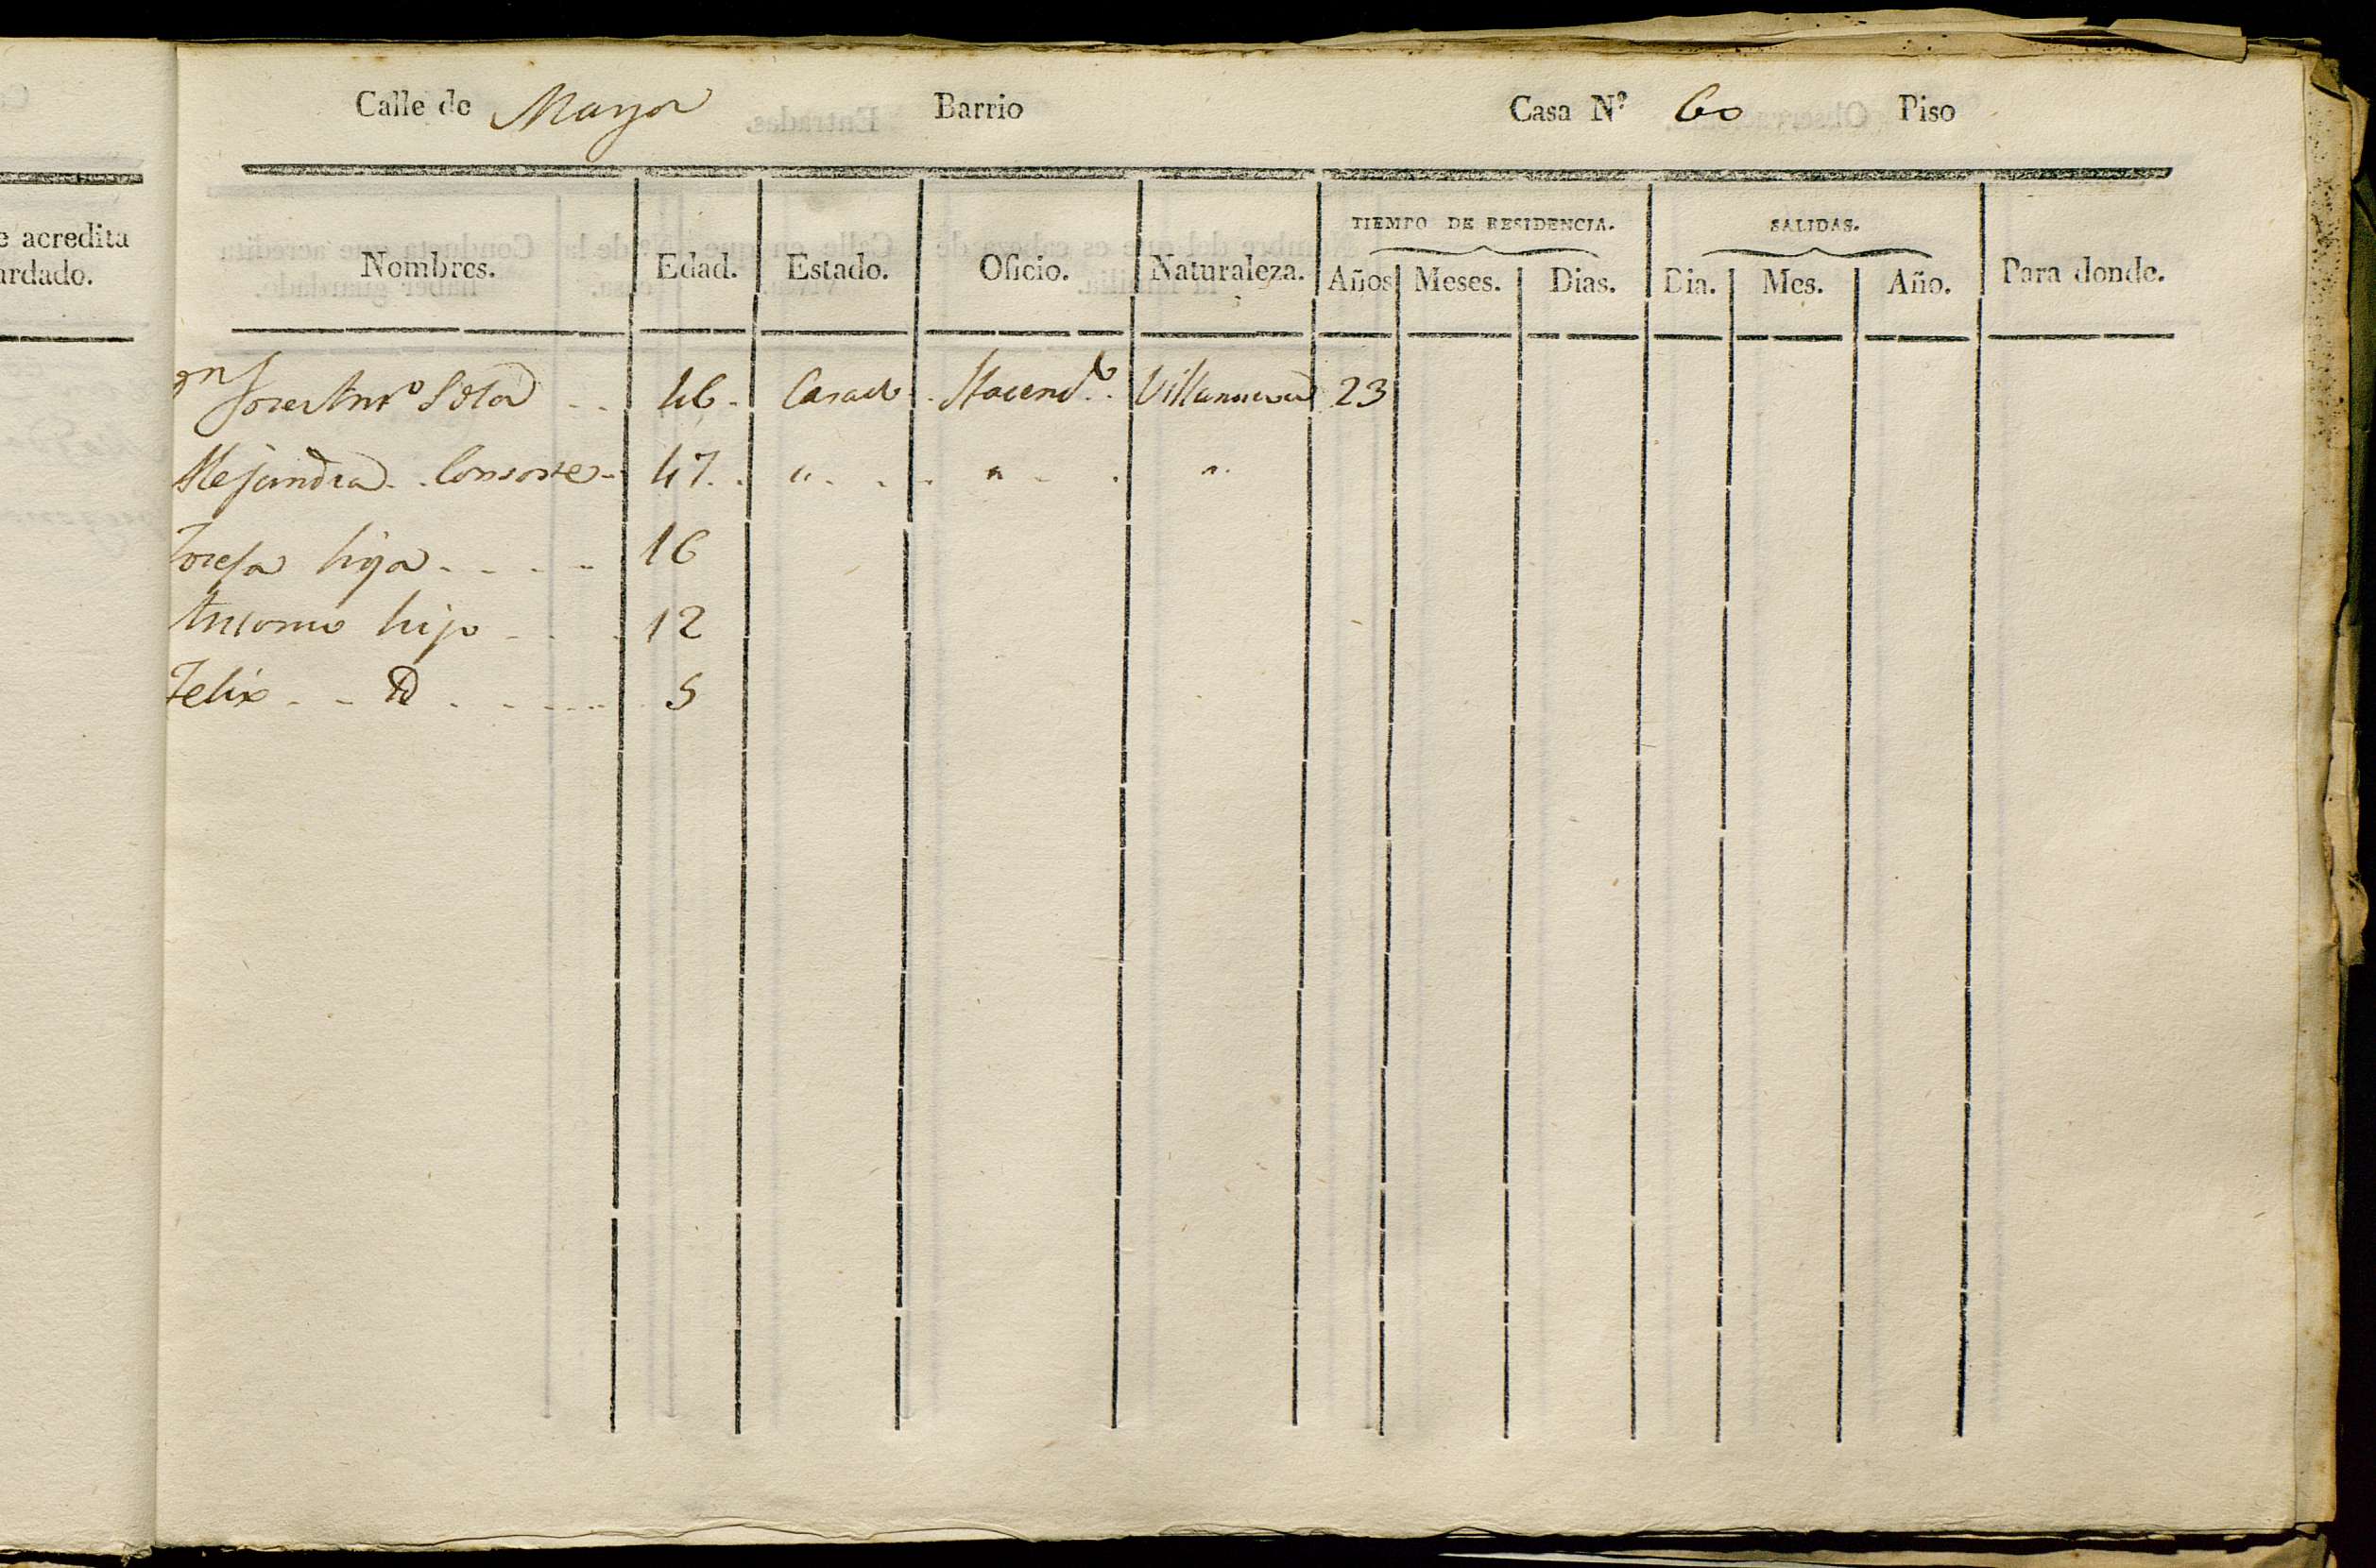 e acredita
ardado.
Calle de Mayor Barrio Casa Nº 60 Piso
TIEMPO DE RESIDENCIA. SALIDAS.
Nombres. Edad. Estado. Oficio. Naturaleza. Años Meses. Dias. Dia. Mes. Año. Para donde.
Dn Jose Antº Sola 46 Casado Hacendº Villanueva 23
Alejandra Consorte 47 " " "
Josefa hija 16
Antonio hijo 12
Felix Yd 5